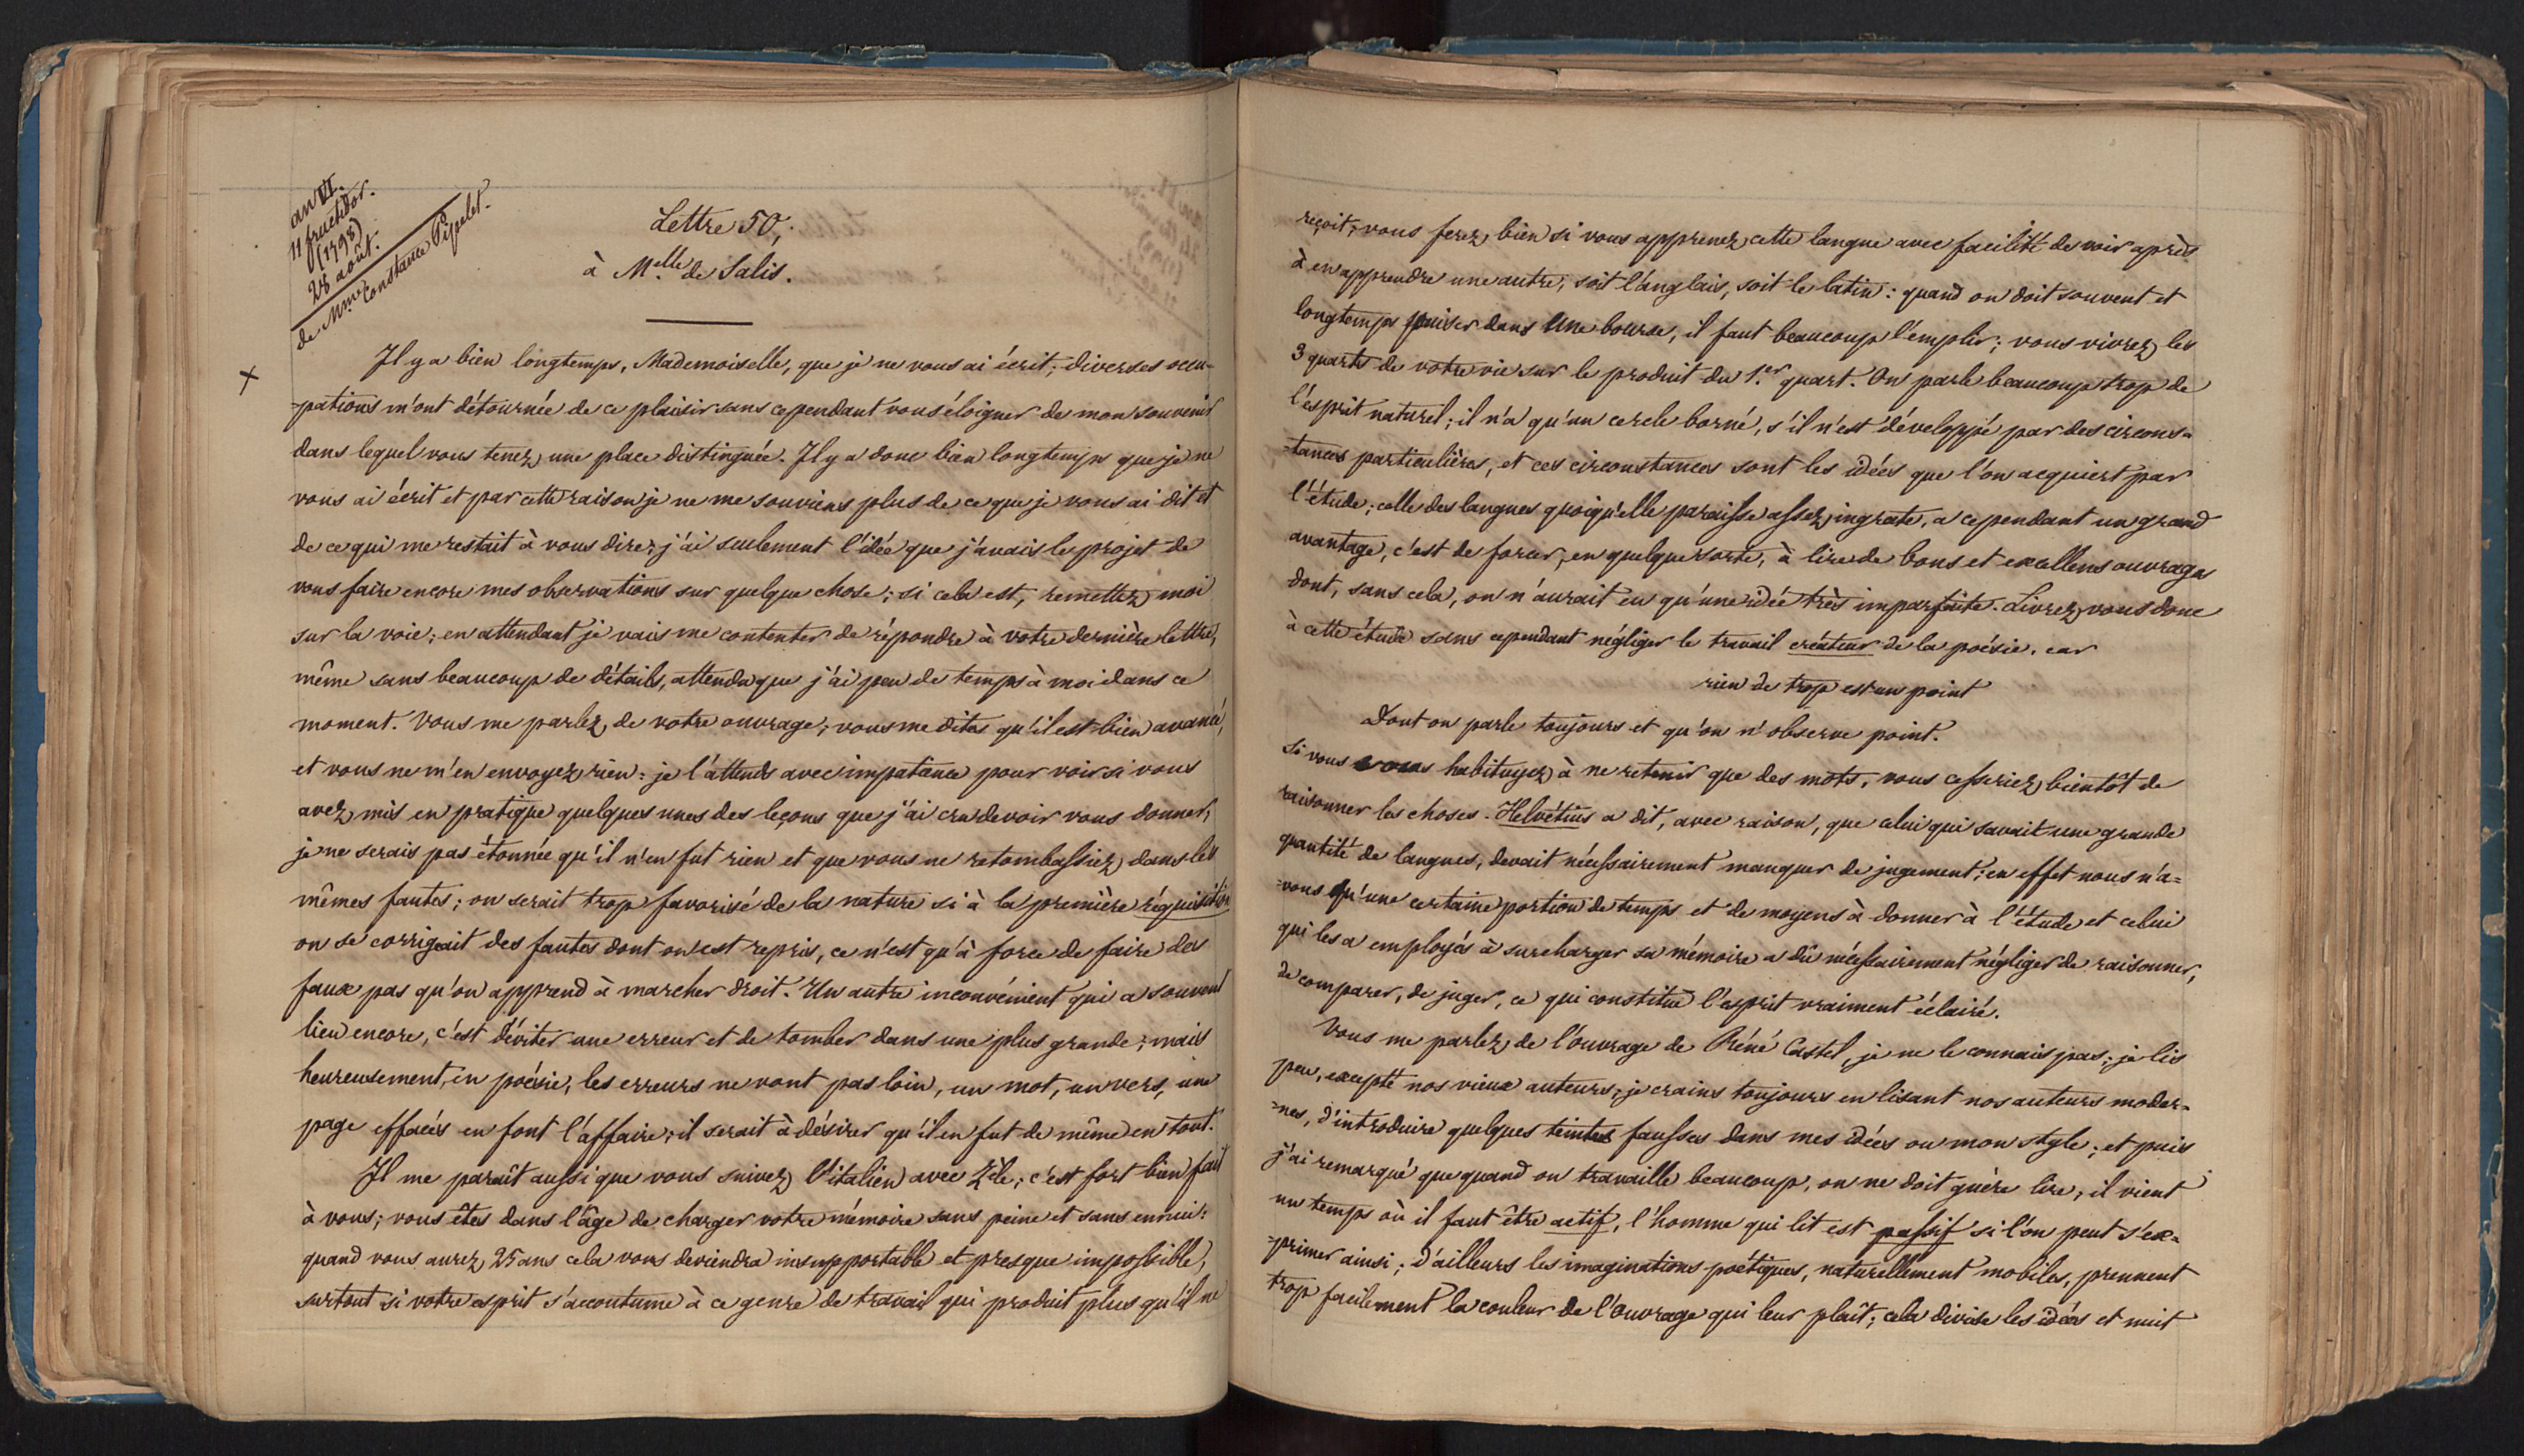 an VI.
11 fructidor.
(1798)
28 août.
de Mme Constance Pipelet.
Lettre 50,
à Melle de Salis.
Il y a bien longtemps, Mademoiselle, que je ne vous ai écrit; diverses occu-
-pations m'ont détournée de ce plaisir sans cependant vous éloigner de mon souvenir
dans lequel vous tenez une place distinguée. Il y a donc bien longtemps que je ne
vous ai écrit et par cette raison je ne me souviens plus de ce que je vous ai dit et
de ce qui me restait à vous dire; j'ai seulement l'idée que j'avais le projet de
vous faire encore mes observations sur quelque chose; si cela est, remettez moi
sur la voie; en attendant je vais me contenter de répondre à votre dernière lettre,
même sans beaucoup de détails, attendu que j'ai peu de temps à moi dans ce
moment. Vous me parlez de votre ouvrage; vous me dites qu'il est bien avancé,
et vous ne m'en envoyez rien: je l'attends avec impatience pour voir si vous
avez mis en pratique quelques unes des leçons que j'ai cru devoir vous donner;
je ne serais pas étonnée qu'il n'en fut rien et que vous ne retombassiez dans les
mêmes fautes; on serait trop favorisé de la nature si à la première réquisition
on se corrigeait des fautes dont on est repris, ce n'est qu'à force de faire des
faux pas qu'on apprend à marcher droit. Un autre inconvénient qui a souvent
lieu encore, c'est d'éviter une erreur et de tomber dans une plus grande; mais
heureusement, en poésie, les erreurs ne vont pas loin, un mot, un vers, une
page effacés en font l'affaire; il serait à désirer qu'il en fut de même en tout.
Il me paraît aussi que vous suivez l'italien avec zèle; c'est fort bien fait
à vous; vous êtes dans l'âge de charger votre mémoire sans peine et sans ennui:
quand vous aurez 25 ans cela vous deviendra insupportable et presque impossible,
surtout si votre esprit s'accoutume à ce genre de travail qui produit plus qu'il ne
reçoit; vous ferez bien si vous apprenez cette langue avec facilité de voir après
à en apprendre une autre, soit l'anglais, soit le latin: quand on doit souvent et
longtemps puiser dans une bourse, il faut beaucoup l'emplir; vous vivrez les
3 quarts de votre vie sur le produit du 1.er quart. On parle beaucoup trop de
l'esprit naturel; il n'a qu'un cercle borné, s'il n'est développé par des circons-
-tances particulières, et ces circonstances sont les idées que l'on acquiert par
l'étude; celle des langues quoiqu'elle paraisse assez ingrate, a cependant un grand
avantage, c'est de forcer, en quelque sorte, à lire de bons et excellens ouvrages
dont, sans cela, on n'aurait eu qu'une idée très imparfaite. Livrez vous donc
à cette étude sans cependant négliger le travail créateur de la poésie. car
rien de trop est un point
Dont on parle toujours et qu'on n'observe point.
Si vous vous habituyez à ne retenir que des mots, vous cesseriez bientôt de
raisonner les choses. Helvétius a dit, avec raison, que celui qui savait une grande
quantité de langues, devait nécessairement manquer de jugement; en effet nous n'a-
-vons qu'une certaine portion de temps et de moyens à donner à l'étude et celui
qui les a employés à surcharger sa mémoire a dû nécessairement négliger de raisonner,
de comparer, de juger, ce qui constitue l'esprit vraiment éclairé.
Vous me parlez de l'ouvrage de Réné Castel, je ne le connais pas; je lis
peu, excepté nos vieux auteurs; je crains toujours en lisant nos auteurs moder-
-nes, d'introduire quelques teintes fausses dans mes idées ou mon style; et puis
j'ai remarqué que quand on travaille beaucoup, on ne doit guère lire; il vient
un temps où il faut être actif, l'homme qui lit est passif si l'on peut s'ex-
-primer ainsi; d'ailleurs les imaginations poétiques, naturellement mobiles, prennent
trop facilement la couleur de l'ouvrage qui leur plaît; cela divise les idées et nuit